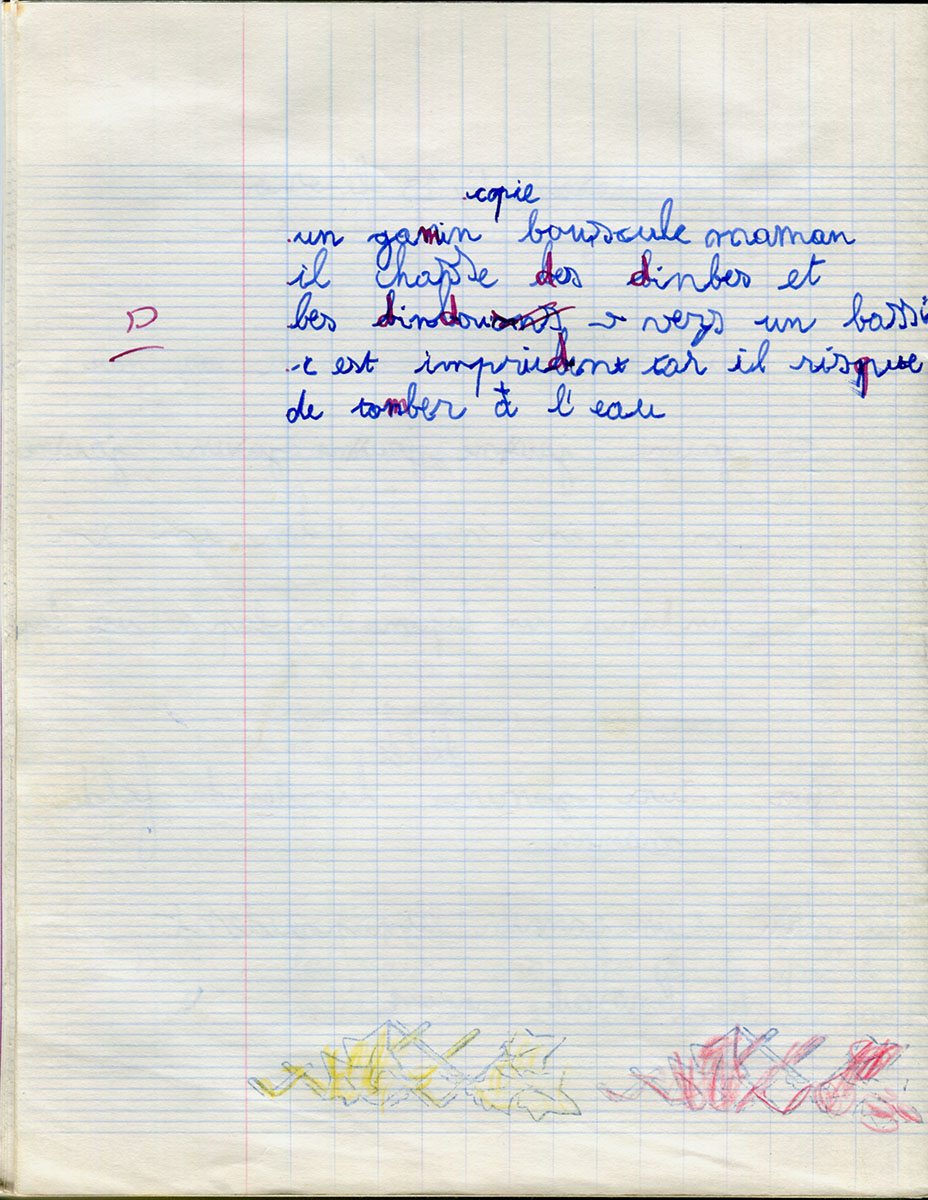 copie
un gamin bousscule maman
il chasse des dinbes et
bes dindou vers un bassi
c est imprudent car il risque
de tomber à l'eau
D